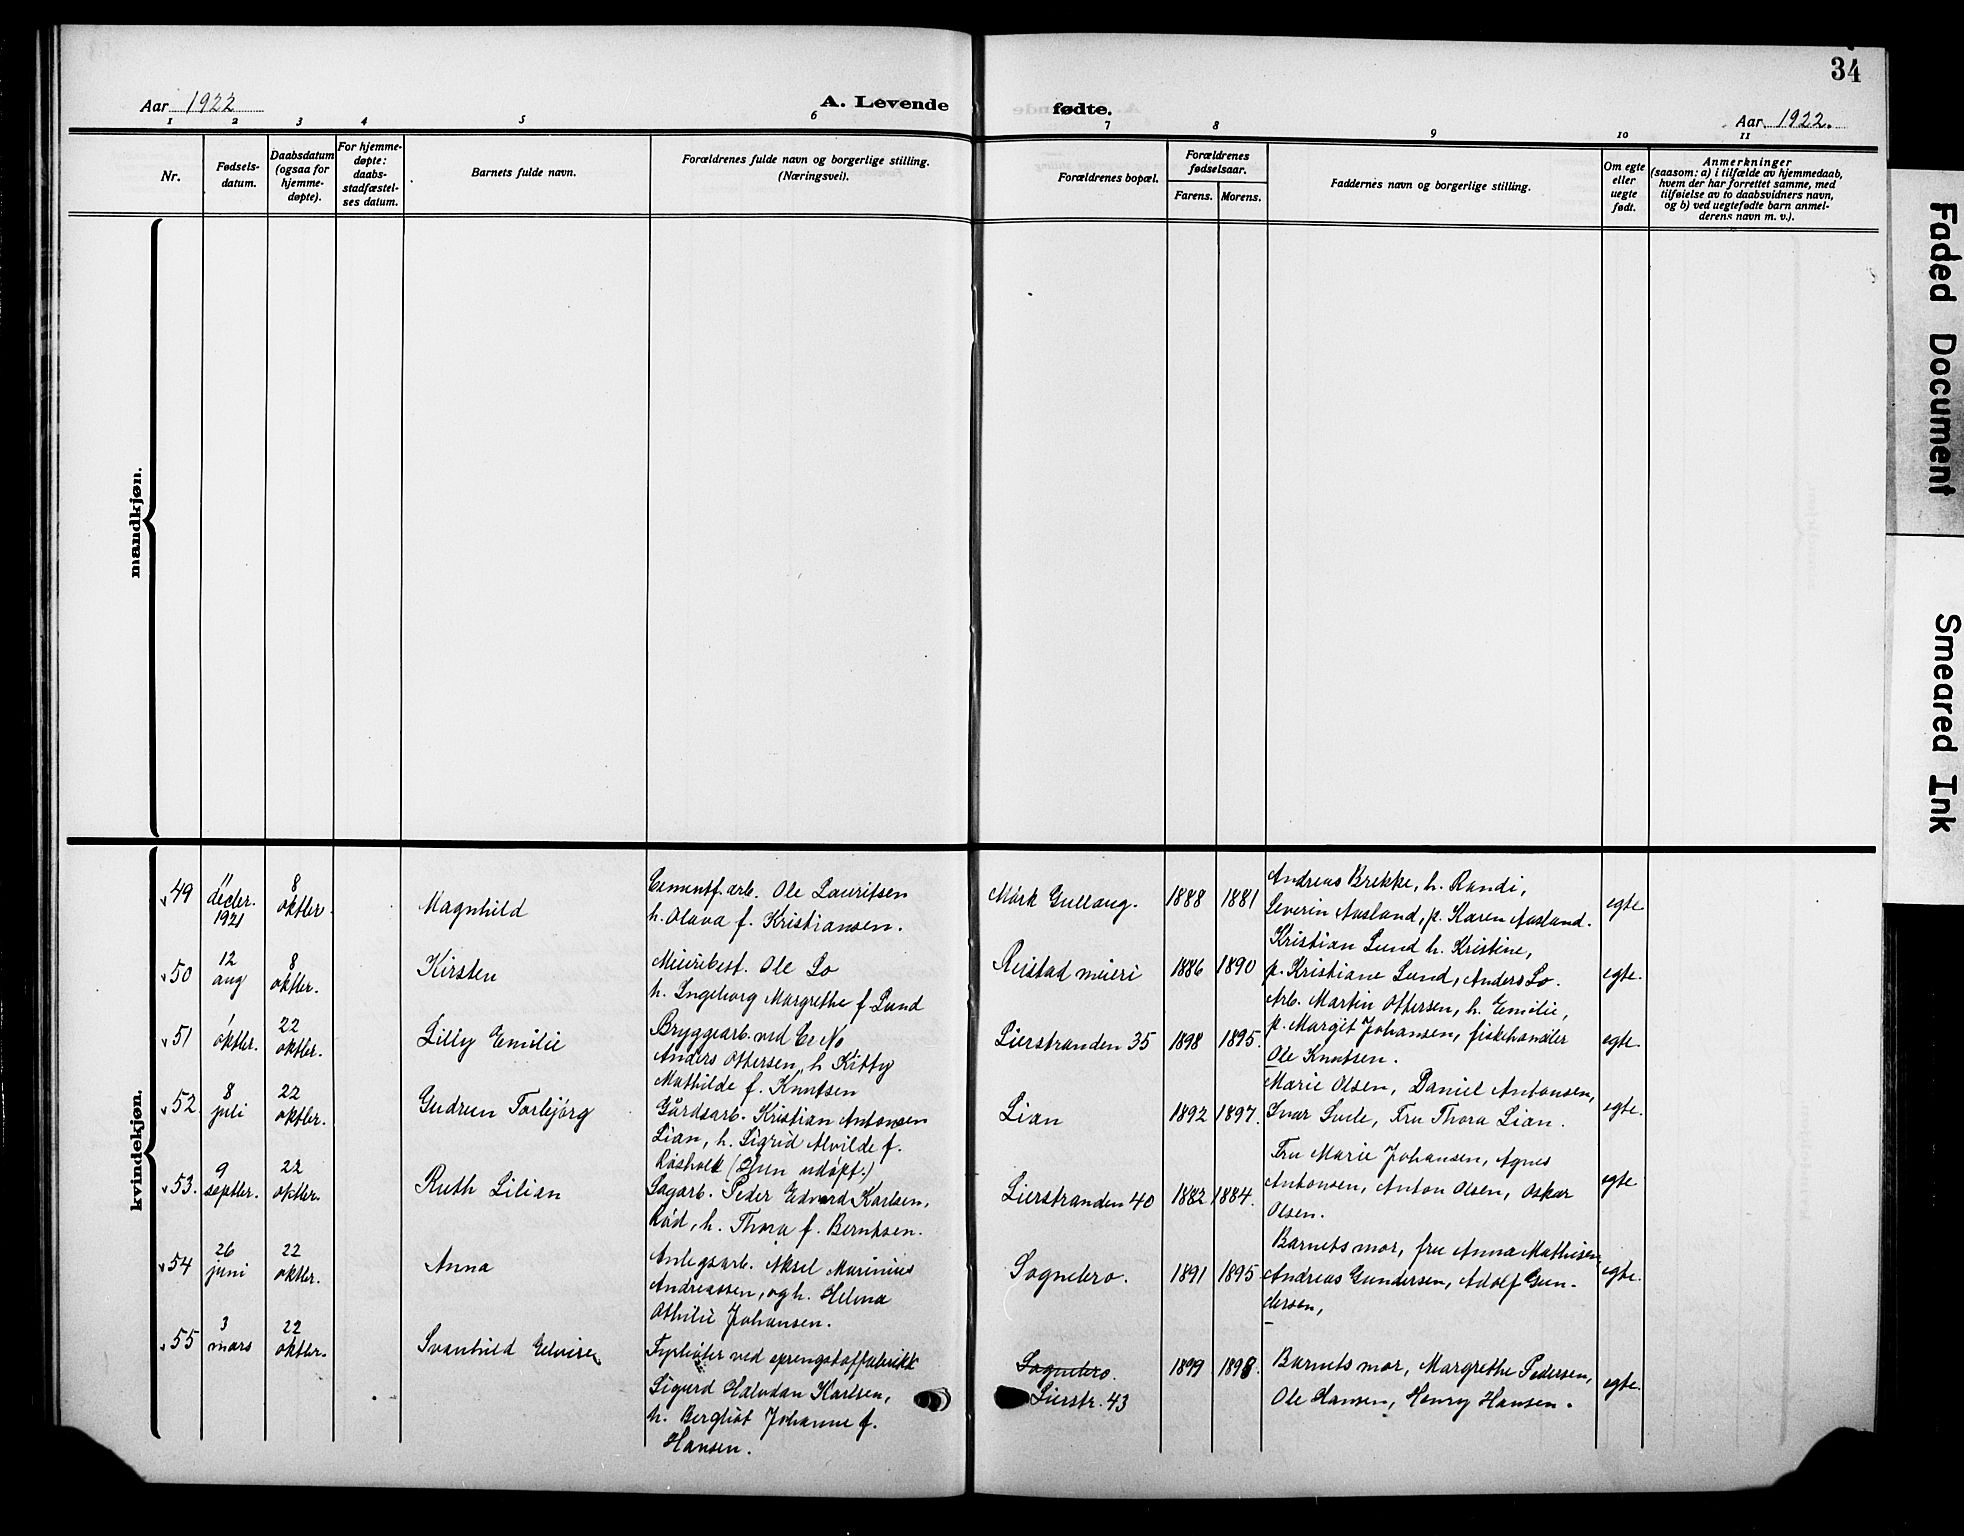 34
Aar 1922
A. Levende fødte.
Aar 1922.
1 2 3 4 5 6 7 8 9 10 11
Nr.
Fødsels-
datum.
Daabsdatum
(ogsaa for
hjemme-
døpte).
For hjemme-
døpte:
daabs-
stadfæstel-
ses datum.
Barnets fulde navn.
Forældrenes fulde navn og borgerlige stilling.
(Næringsvei).
Forældrenes bopæl.
Forældrenes
fødselsaar.
Farens. Morens.
Faddernes navn og borgerlige stilling.
Om egte
eller
uegte
født.
Anmerkninger
(saasom: a) i tilfælde av hjemmedaab,
hvem der har forrettet samme, med
tilføielse av to daabsvidners navn,
og b) ved uegtefødte barn anmel-
derens navn m. v.).
mandkjøn.
kvindekjøn.
49
11
decbr.
1921
8
oktbr.
Magnhild
Cementf. arb. Ole Lauritsen
h. Olava f. Kristiansen.
Mörk Gullaug.
1888 1881
Andreas Brekke, h. Randi,
Severin Aasland, p. Karen Aasland.
egte
50
12
aug
8
oktbr.
Kirsten
Meieribest. Ole Lo
h. Ingeborg Margrethe f Lund
Reistad meieri
1886 1890
Kristian Lund h. Kristine,
p. Kristiane Lund, Anders Lo.
egte.
51
1
oktbr.
22
oktbr.
Lilly Emilie
Bryggearb. ved Ce No
Anders Ottersen, h Kitty
Mathilde f. Knutsen
Lierstranden 35
1898 1895.
Arb. Martin Ottersen, h. Emilie,
p. Margit Johansen, fiskehandler
Ole Knutsen.
egte.
52.
8
juli
22
oktbr.
Gudrun Torbjørg
Gårdsarb. Kristian Antonsen
Lian, h. Sigrid Alvilde f.
Råsholt (Hun udøpt.)
Lian
1892 1897.
Marie Olsen, Daniel Antonsen,
Ivar Svele, Fru Thora Lian.
egte.
53.
9
septbr.
22
oktbr.
Ruth Lilian
Sagarb. Peder Edvard Karlsen,
Rød, h. Thora f. Berntsen.
Lierstranden 40
1882 1884.
Fru Marie Johansen, Agnes
Antonsen, Anton Olsen, Oskar
Olsen.
egte
54
26
juni
22
oktbr.
Anna
Anlegsarb. Aksel Marinius
Andreassen, og h. Helma
Othilie Johansen.
Sognebro.
1891 1895
Barnets mor, fru Anna Mathisen,
Andreas Gundersen, Adolf Gun-
dersen,
egte.
55
3
mars
22
oktbr.
Svanhild Elvire
Fyrbøter ved sprengstoffabrikk
Sigurd Halvdan Karlsen,
h. Bergliot Johanne f.
Hansen.
Sognebro.
Lierstr. 43
1899 1898.
Barnets mor, Margrethe Pedersen,
Ole Hansen, Henry Hansen.
egte.
Faded Document
Smeared Ink